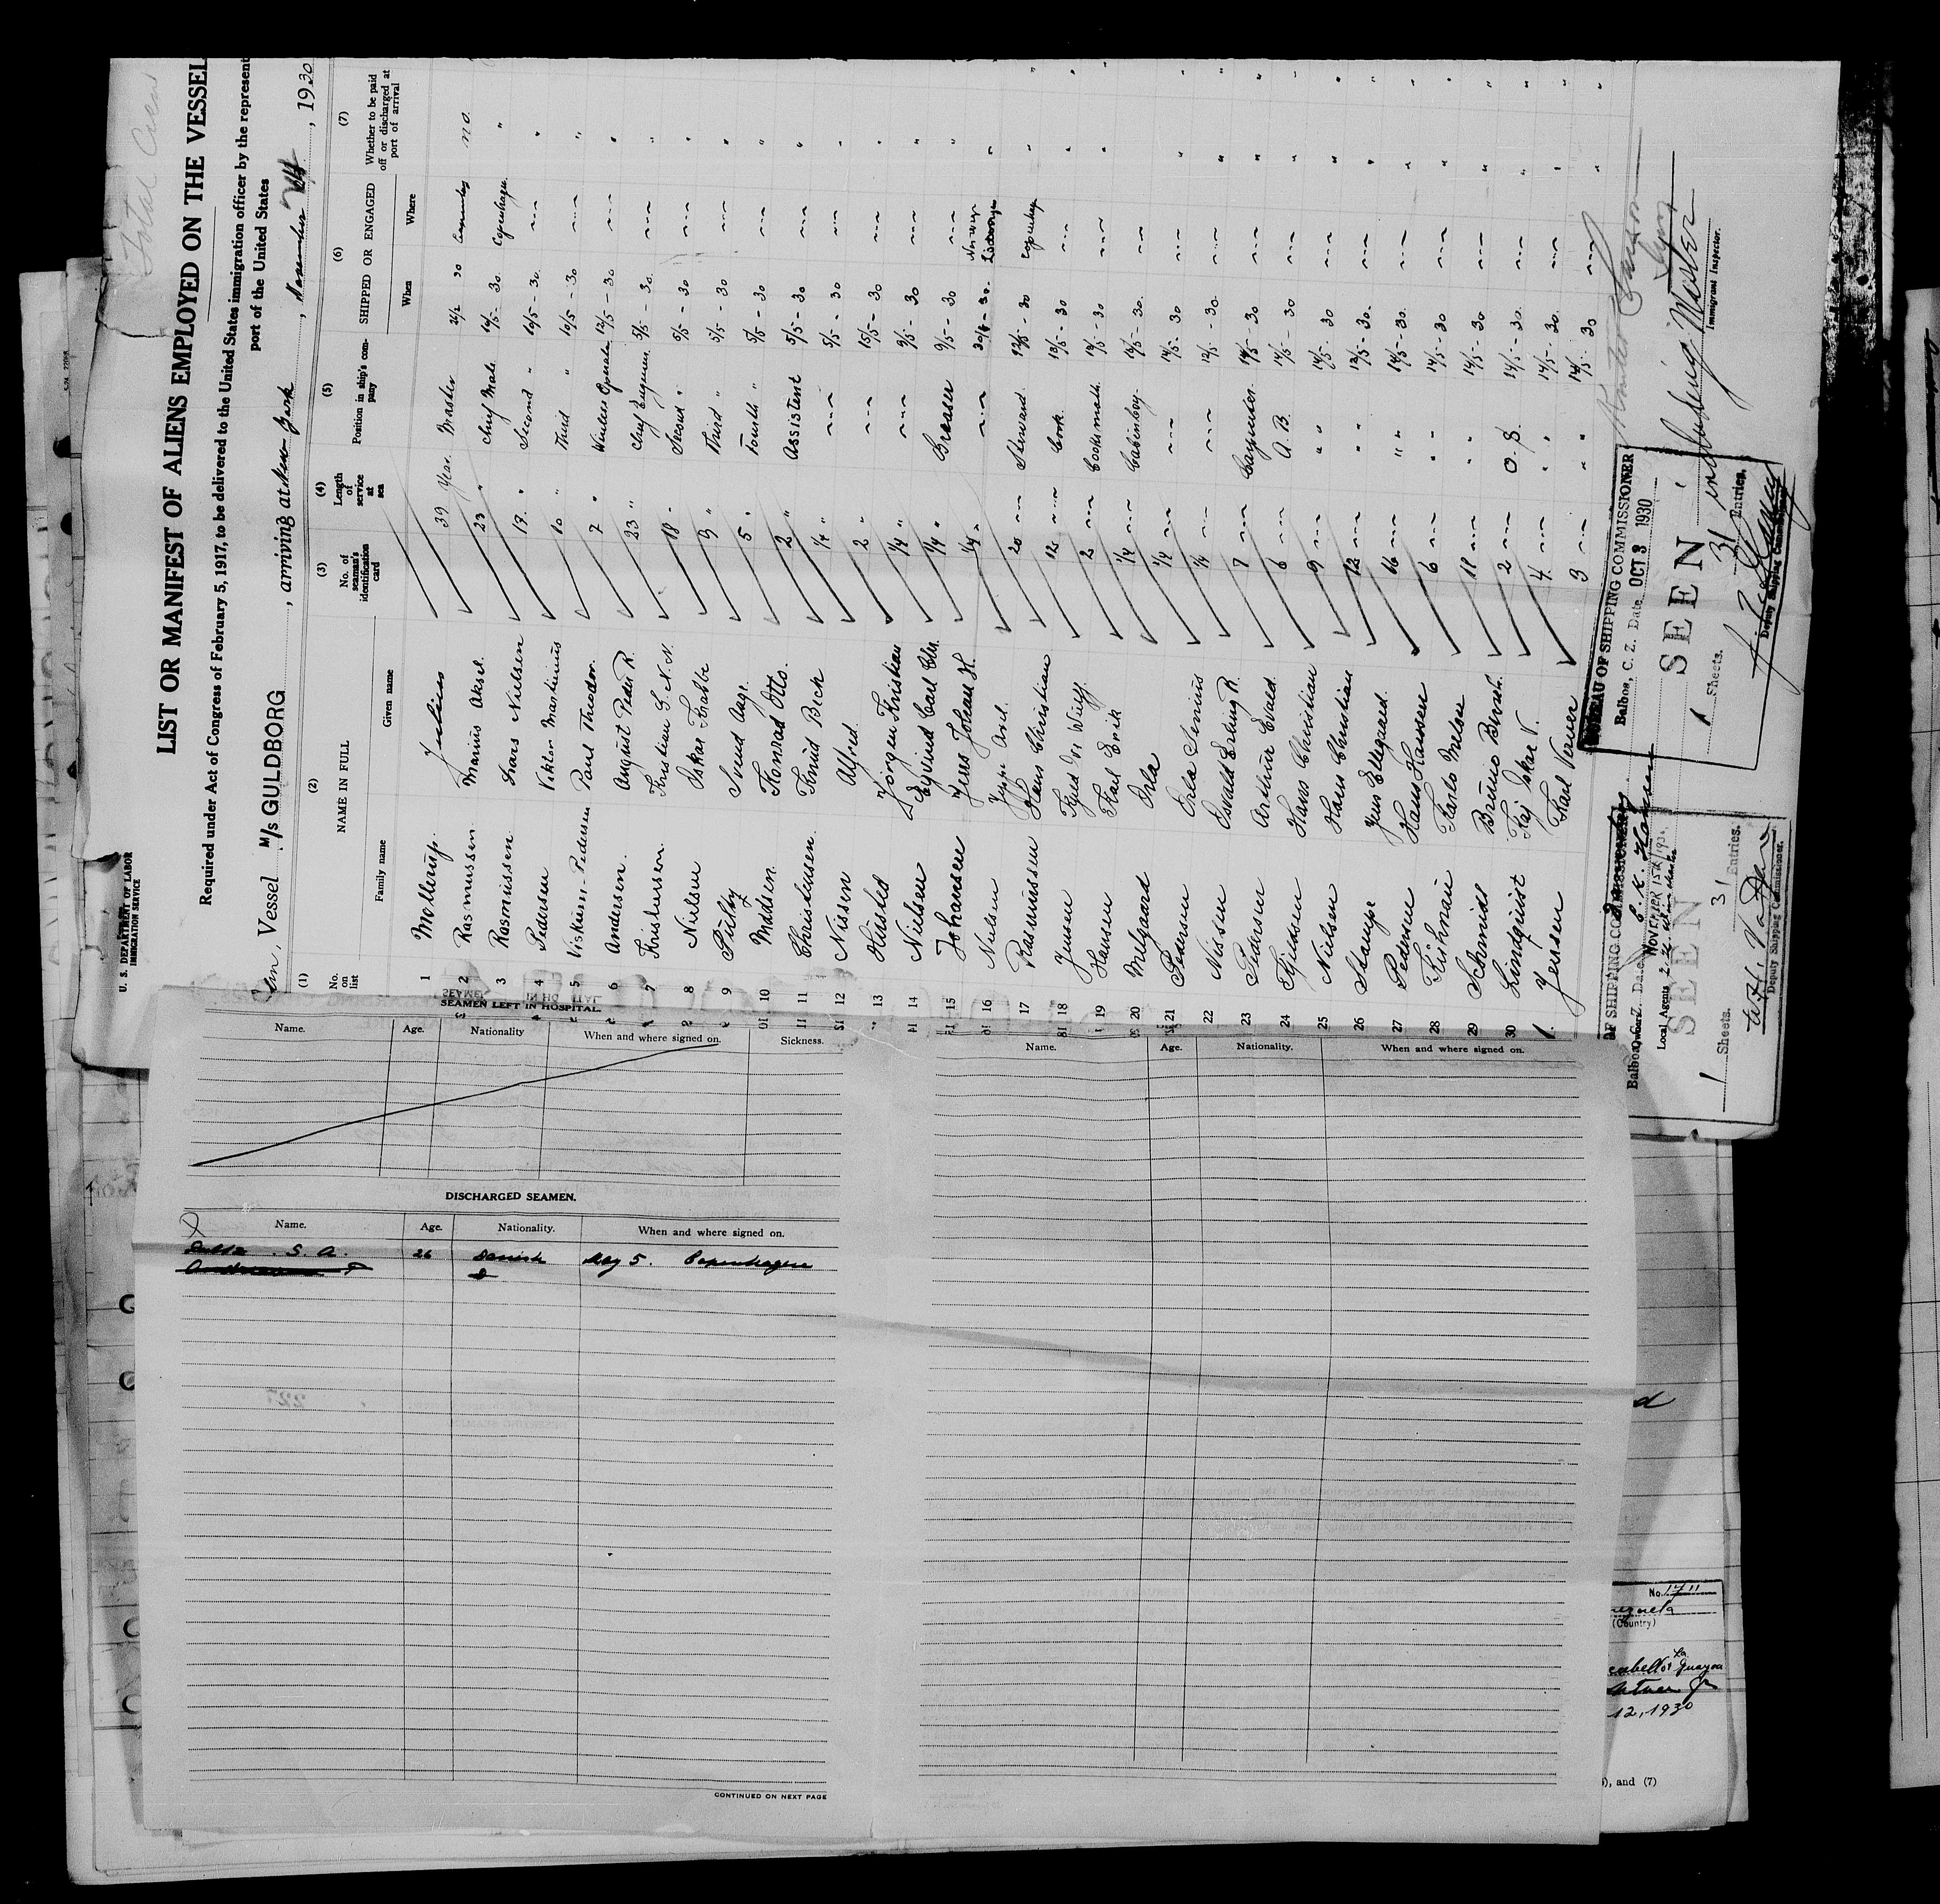 Total Crew
U. S. DEPARTMENT OF LABOR
IMMIGRATION SERVICE
LIST OR MANIFEST OF ALIENS EMPLOYED ON THE VESSEL
Required under Act of Congress of February 5, 1917, to be delivered to the United States immigration officer by the represent
port of the United States
Vessel M/s GULDBORG, arriving at New York, November, 1930
(1) (2) (3) (4) (5) (6) (7)
No. on list NAME IN FULL No. of seaman's identification card Length of service at sea Position in ship's company SHIPPED OR ENGAGED Whether to be paid off or discharged at port of arrival
Family name Given name When Where
1 Mollerup Julius 39 Year. Master 30 no.
2 Rasmussen Marius Aksel. 23 " Chief Mate 10/5 - 30. Copenhagen. "
3 Rasmussen Lars Nielsen 13. " Second " 10/5 - 30. "
4 Pedersen Viktor Martinius 10 " Third " 10/5 - 30 "
5 Viskum-Pedersen Poul Theodor. 7 " 12/5 - 30 "
6 Andersen. August Peder R. 23 " Chief Engineer 5/5 - 30. "
7 Kristensen Kristian S. N. N. 18 " Second " 5/5 - 30 "
8 Nielsen Oskar Krabbe 9 " Third " 5/5 - 30 "
9 Svend Aage. 5 " Fourth " 5/5 - 30 "
10 Madsen. Konrad Otto. 2 " Assistent 5/5 - 30 "
11 Christensen. Knud Beck 1/4 " 5/5 - 30 "
12 Nissen Alfred 2 " 15/5 - 30 "
13 Husted Jörgen Kristian 1/4 " 9/5 - 30 "
14 Nielsen Eyvind Carl Chr. 1/4 " Greaser 9/5 - 30 "
15 Johansen Jens Johan H. 1/4 " 30/8 - 30. Norway "
16 Nielsen Jeppe Axel. 20 Steward. 12/5 - 30 Copenhag "
17 Rasmussen Hans Christian 12 Cook. 13/5 - 30 "
18 Jensen 2 Cooksmath. 13/5 - 30 "
19 Hansen Karl Erik 1/4 Cabinboy. 13/5 - 30.
20 Melgaard Orla 1/4 14/5 - 30 "
21 Pedersen Orla Senius 1/4 12/5 - 30. "
22 Nissen Evald Erling R. 7 Carpenter. 14/5 - 30 "
23 Petersen Arthur Evald. 8 A. B. 14/5 - 30 "
24 Hans Christian 9 " " 14/5 - 30 "
25 Nielsen Hans Christian 12 " " 12/5 - 30. "
26 Stampe Jens Ellegaard. 16 " " 14/5 - 30. "
27 Pedersen Hans Hansen 6 " " 14/5 - 30 "
28 Karlo Nelsen 11 " " 14/5 - 30 "
29 Schmidt Bruno Bernh. 2 O. S. 14/5 - 30. "
30 Lindquist Kaj Oskar V. 4 " " 14/5 - 30. "
1. Jessen Karl Verner 3 " " 14/5 - 30 "
BUREAU OF SHIPPING COMMISSIONER
Balboa, C. Z. Date OCT 3 1930
SEEN
1 Sheets. 31 Entries.
Deputy Shipping Commissioner
including Master
Immigrant Inspector.
OF SHIPPING COMMISSIONER
Balboa, C. Z. Date NOVEMBER 15th/1930.
Local Agents
SEEN
1 Sheets. 31 Entries.
Deputy Shipping Commissioner.
SEAMEN LEFT IN HOSPITAL.
Name. Age. Nationality When and where signed on. Sickness.
DISCHARGED SEAMEN.
Name. Age. Nationality. When and where signed on.
S. A. 26 Danish May 5. Copenhagen
CONTINUED ON NEXT PAGE
Name. Age. Nationality. When and where signed on.
No. 1711
(Country)
12, 1930
, and (7)